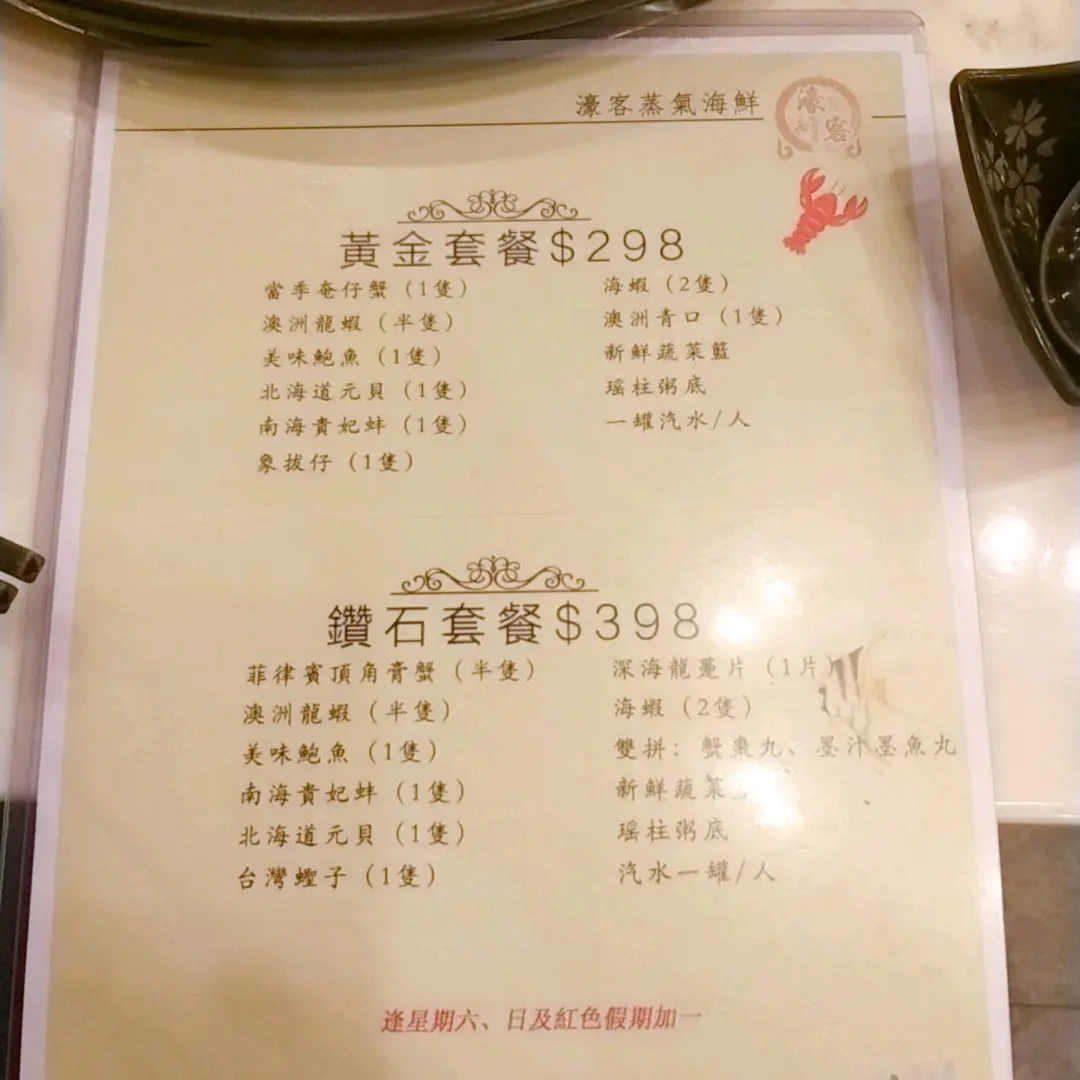 濠客蒸氣海鮮
濠
客
黃金套餐$298
當季奄仔蟹（1隻）
澳洲龍蝦（半隻）
美味鮑魚（1隻）
北海道元貝（1隻）
南海貴妃蚌（1隻）
象拔仔（1隻）
海蝦（2隻）
澳洲青口（1隻）
新鮮蔬菜籃
瑤柱粥底
一罐汽水/人
鑽石套餐$398
菲律賓頂角膏蟹（半隻）
澳洲龍蝦（半隻）
美味鮑魚（1隻）
南海貴妃蚌（1隻）
北海道元貝（1隻）
台灣蟶子（1隻）
深海龍躉片（1片）
海蝦（2隻）
雙拼：蟹棗丸、墨汁墨魚丸
新鮮蔬菜
瑤柱粥底
汽水一罐/人
逢星期六、日及紅色假期加一